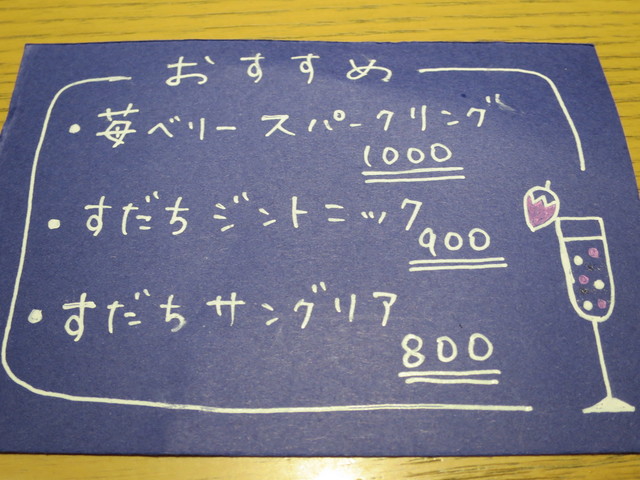 おすすめ
・苺ベリースパークリング
1000
・すだちジントニック
900
・すだちサングリア
800